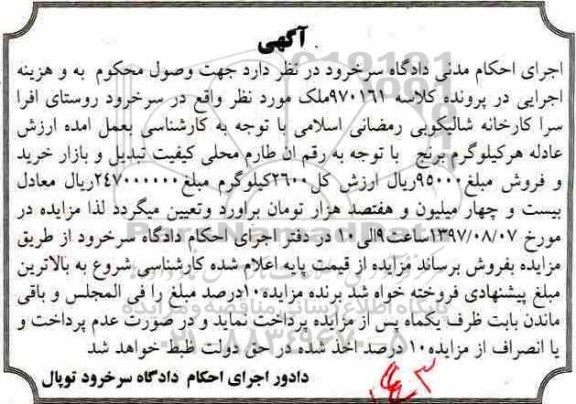 آگهی
اجرای احکام مدنی دادگاه سرخرود در نظر دارد جهت وصول محکوم به و هزینه
اجرایی در پرونده کلاسه ۹۷۰۱۶۱ملک مورد نظر واقع در سرخرود روستای افرا
سرا کارخانه شالیکوبی رمضانی اسلامی با توجه به کارشناسی بعمل امده ارزش
عادله هرکیلوگرم برنج با توجه به رقم ان طارم محلی کیفیت تبدیل و بازار خرید
و فروش مبلغ۹۵۰۰۰ریال ارزش کل۲۶۰۰کیلوگرم مبلغ۲۴۷۰۰۰۰۰۰ریال معادل
بیست و چهار میلیون و هفتصد هزار تومان براورد وتعیین میگردد لذا مزایده در
مورخ ۱۳۹۷/۰۸/۰۷ساعت۹الی۱۰ در دفتر اجرای احکام دادگاه سرخرود از طریق
مزایده بفروش برساند مزایده از قیمت پایه اعلام شده کارشناسی شروع به بالاترین
مبلغ پیشنهادی فروخته خواه شد برنده مزایده۱۰درصد مبلغ را فی المجلس و باقی
ماندن بابت ظرف یکماه پس از مزایده پرداخت نماید و در صورت عدم پرداخت و
یا انصراف از مزایده۱۰درصد اخذ شده در حق دولت ظبط خواهد شد
دادور اجرای احکام دادگاه سرخرود توپال